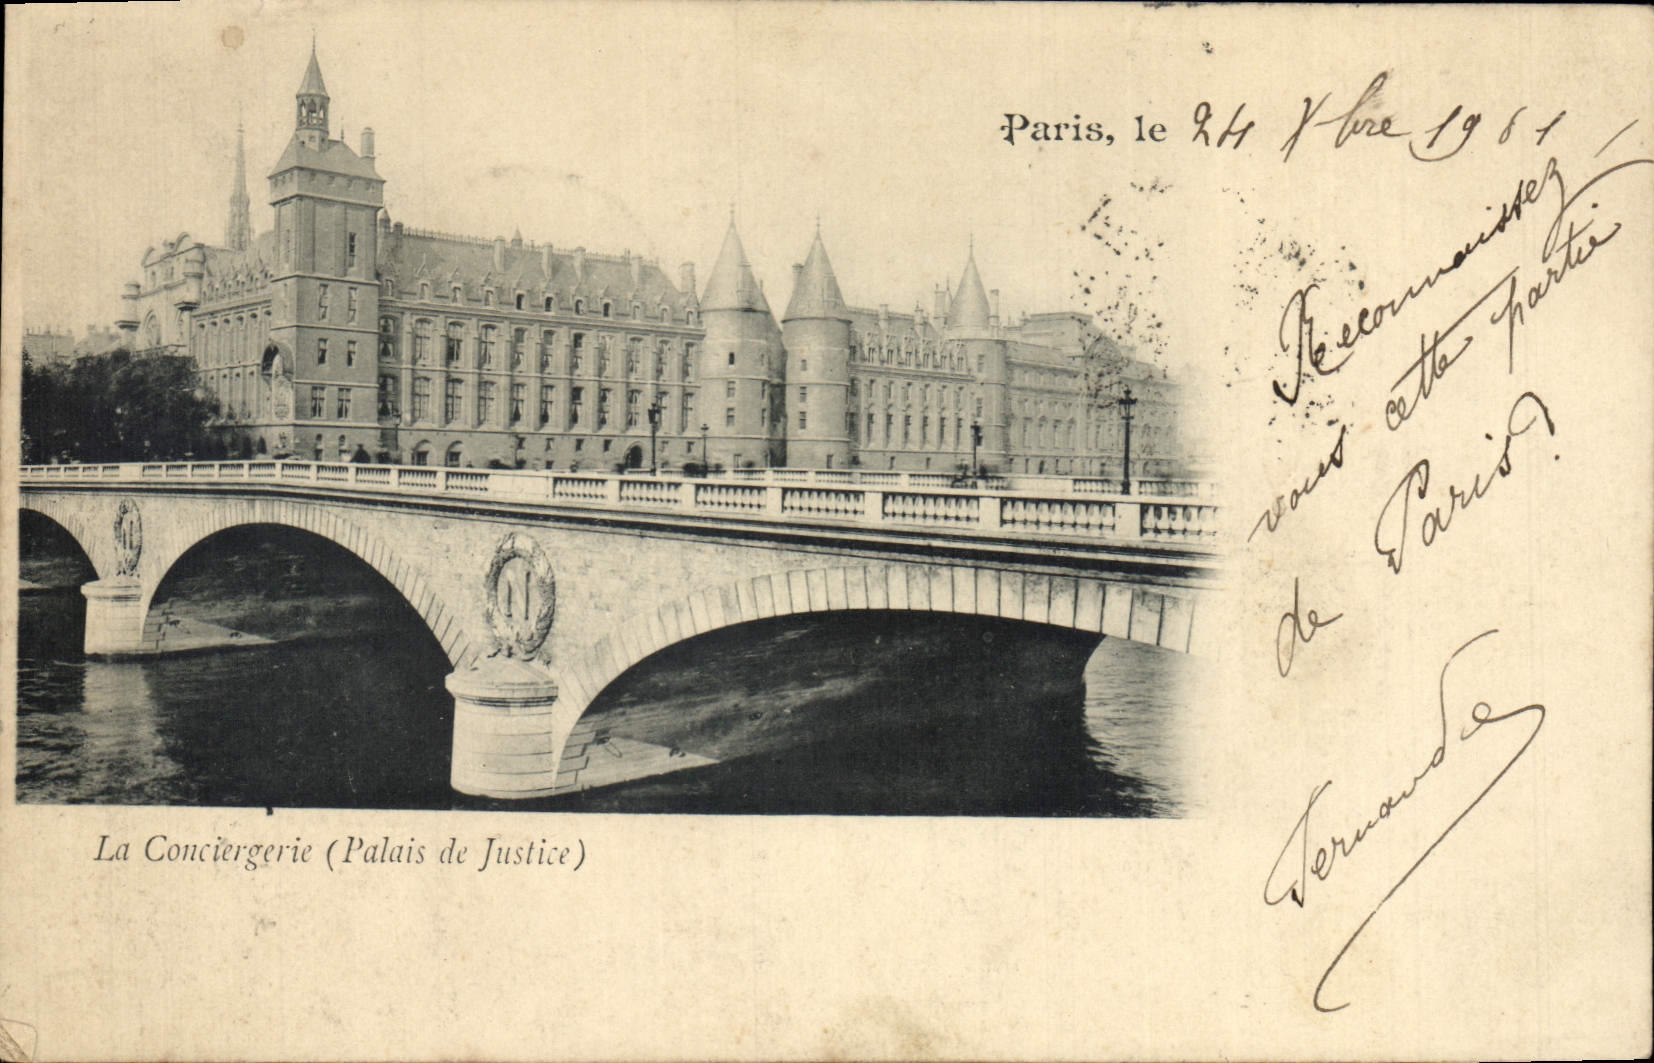 Paris, le 24 Xbre 1901
Reconnaissez
vous cette partie
de Paris?
Fernande
N
N
La Conciergerie (Palais de Justice)